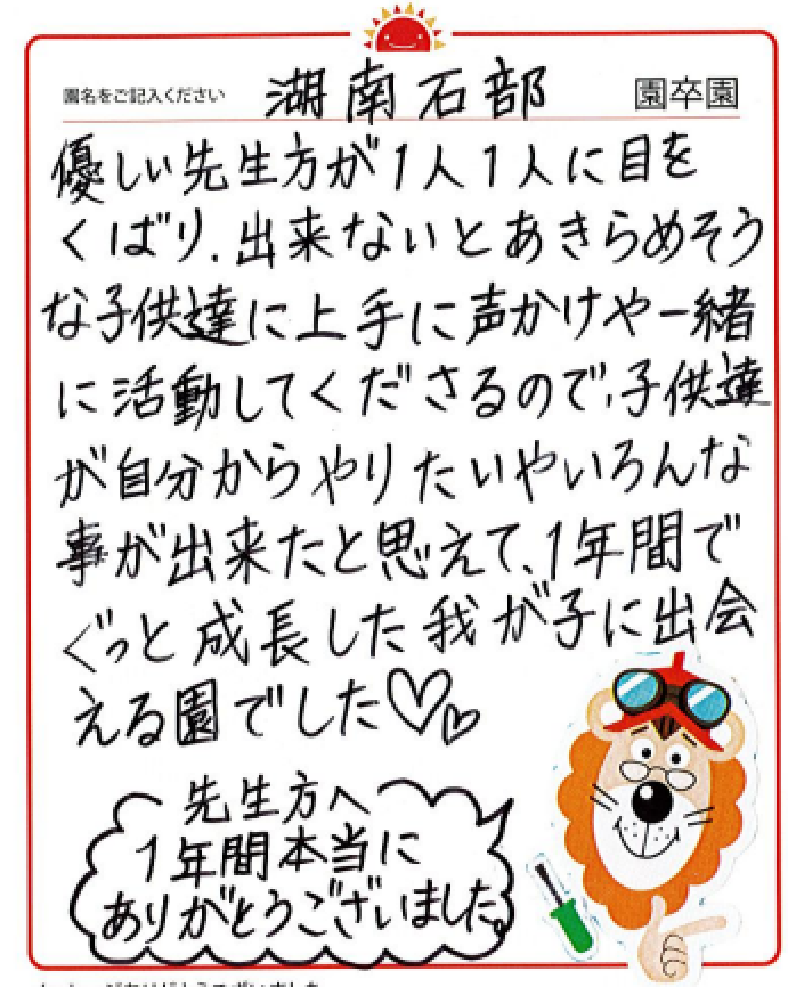 園名をご記入ください 湖南石部 園卒園
優しい先生方が1人1人に目を
くばり、出来ないとあきらめそう
な子供達に上手に声かけや一緒
に活動してくださるので、子供達
が自分からやりたいやいろんな
事が出来たと思えて、1年間で
ぐっと成長した我が子に出会
える園でした♡♡
先生方へ
1年間本当に
ありがとうございました。